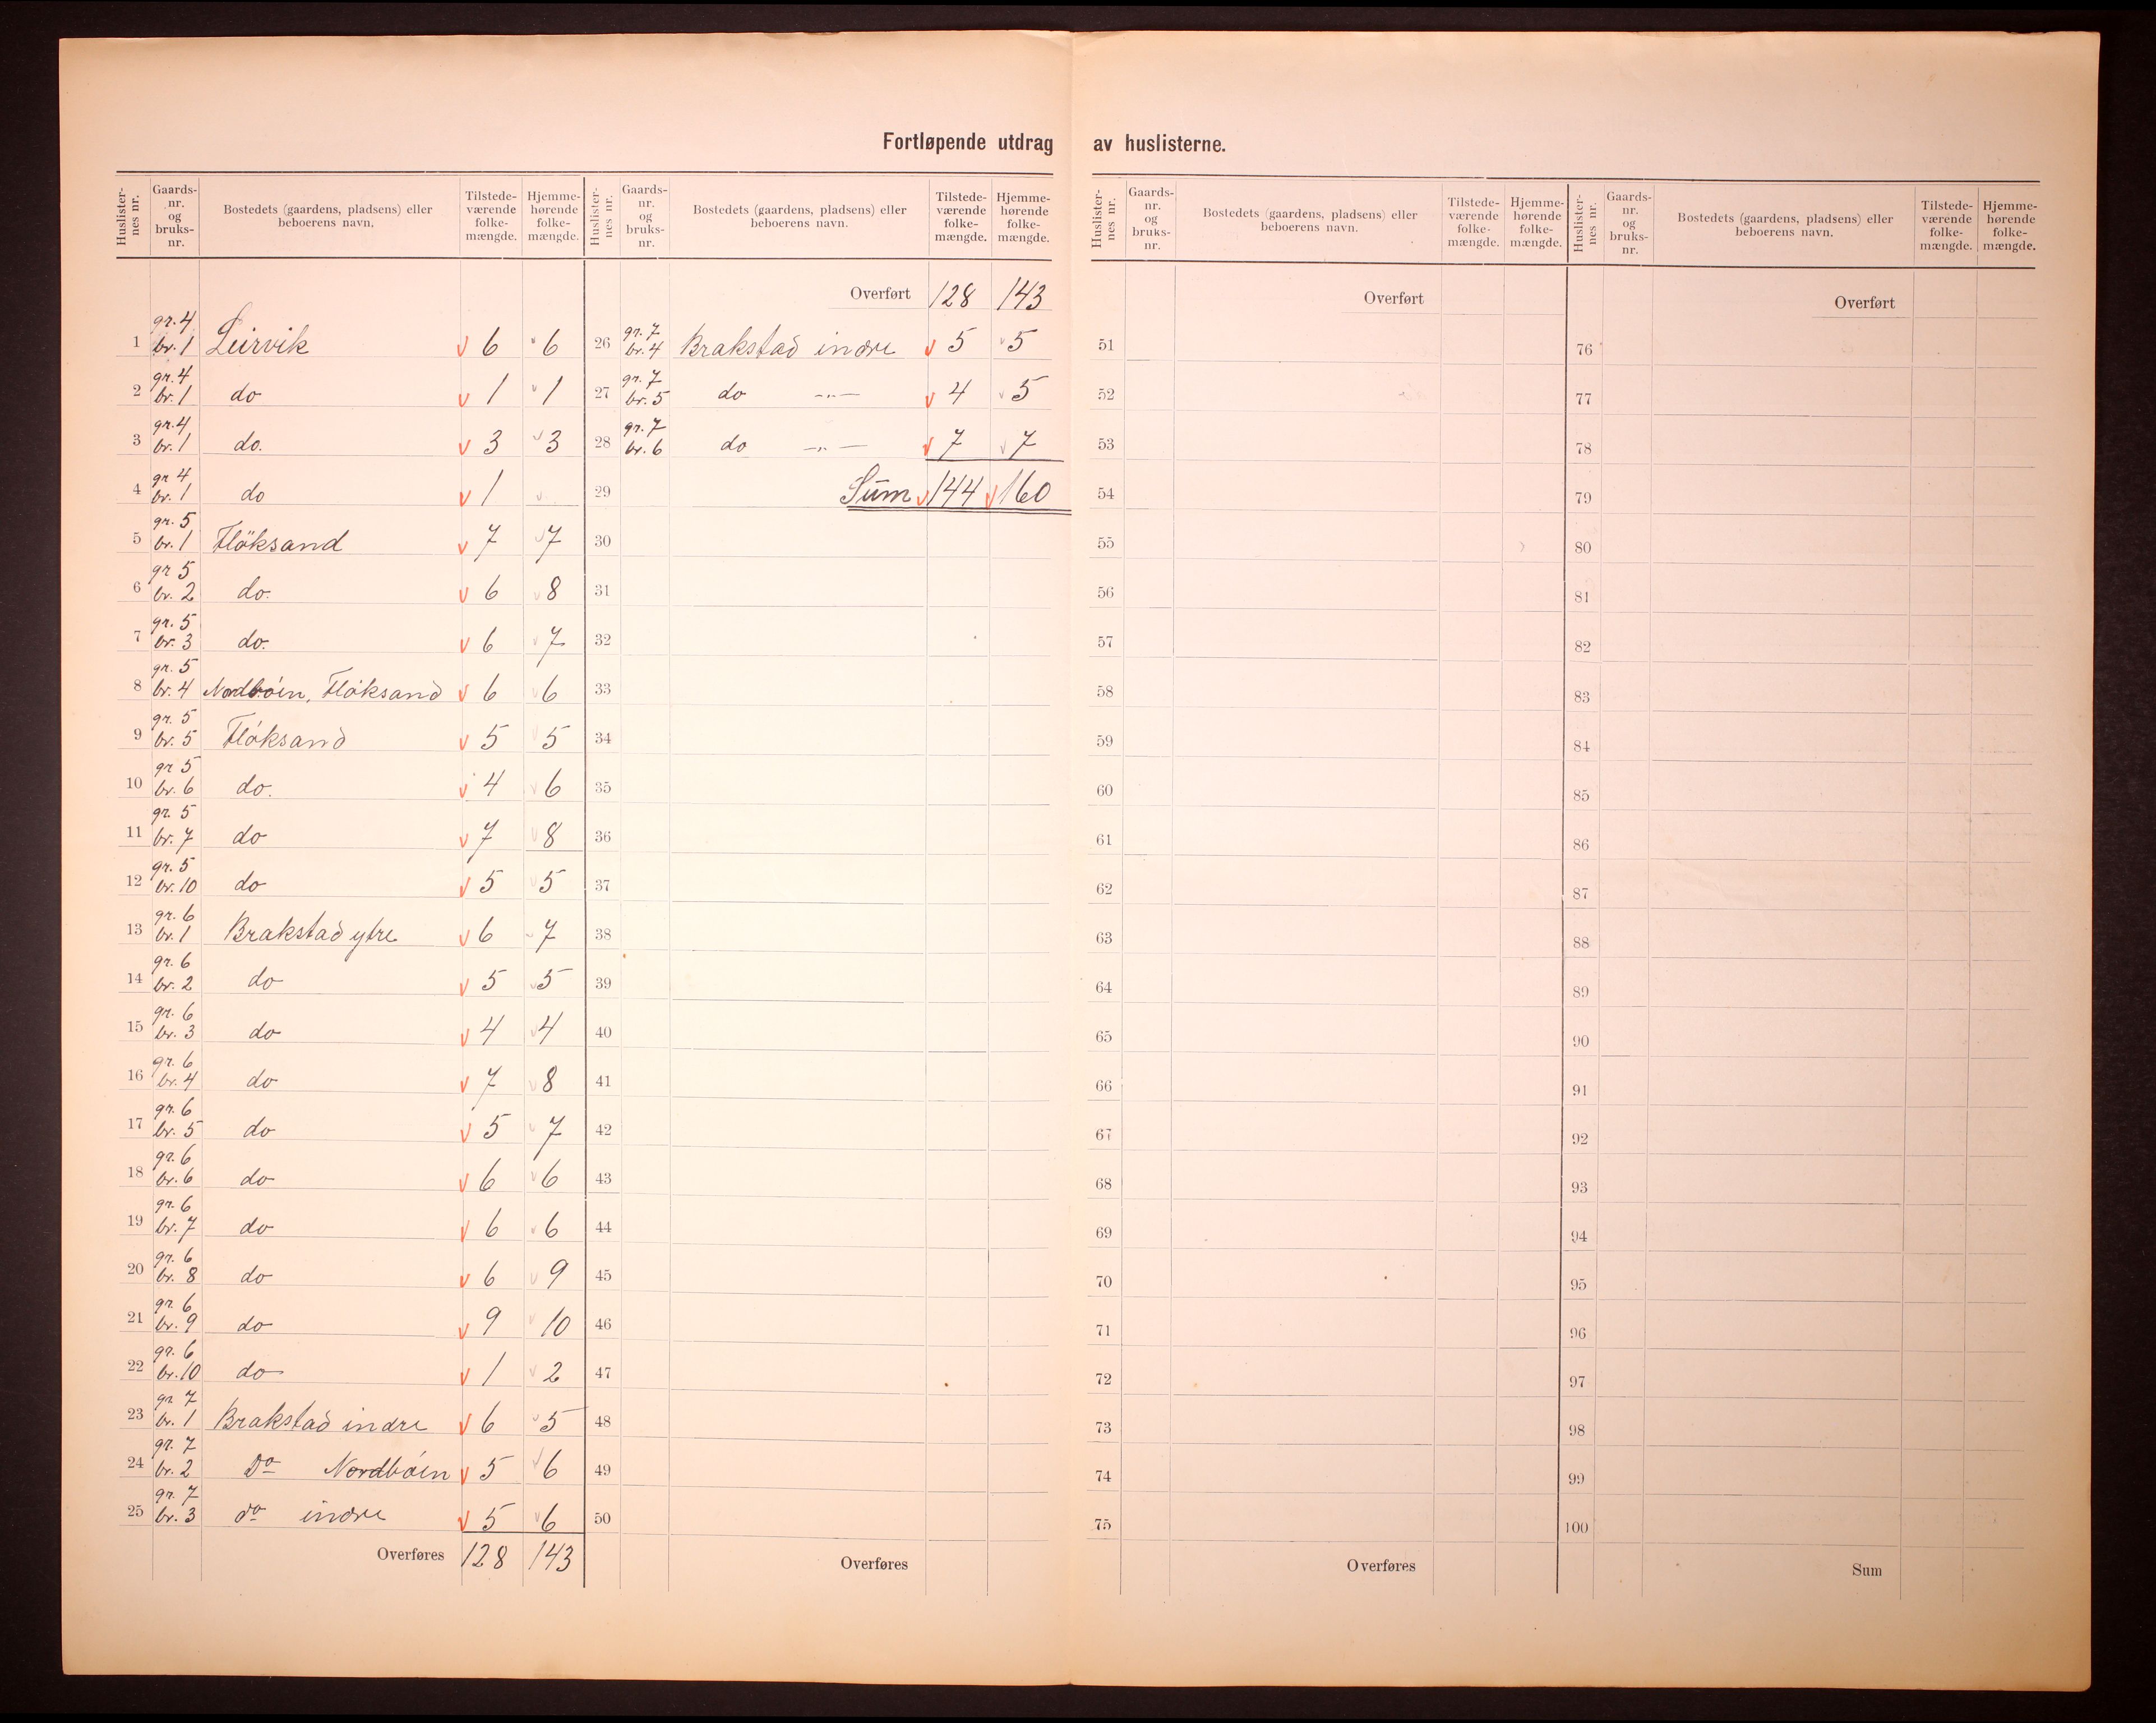 Fortløpende utdrag av huslisterne.
Huslister-nes nr. Gaards-nr. og bruks-nr. Bostedets (gaardens, pladsens) eller beboerens navn. Tilstede-værende folke-mængde. Hjemme-hørende folke-mængde.
1 gr. 4 br. 1 Leirvik v 6 v 6
2 gr. 4 br. 1 do v 1 v 1
3 gr. 4 br. 1 do. v 3 v 3
4 gr 4 br. 1 do v 1 v
5 gr. 5 br. 1 Flöksand v 7 v 7
6 gr 5 br. 2 do. v 6 v 8
7 gr. 5 br. 3 do. v 6 v 7
8 gr. 5 br. 4 Nordbóen, Flóksand v 6 v 6
9 gr. 5 br. 5 Flóksand v 5 v 5
10 gr 5 br. 6 do. v 4 v 6
11 gr. 5 br. 7 do v 7 v 8
12 gr. 5 br. 10 do v 5 v 5
13 gr. 6 br. 1 Brakstad ytre v 6 v 7
14 gr. 6 br. 2 do v 5 v 5
15 gr. 6 br. 3 do v 4 v 4
16 gr. 6 br. 4 do v 7 v 8
17 gr. 6 br. 5 do v 5 v 7
18 gr. 6 br. 6 do v 6 v 6
19 gr. 6 br. 7 do v 6 v 6
20 gr. 6 br. 8 do v 6 v 9
21 gr. 6 br. 9 do v 9 v 10
22 gr. 6 br. 10 do v 1 v 2
23 gr. 7 br. 1 Brakstad indre v 6 v 5
24 gr. 7 br. 2 Do Nordbóen v 5 v 6
25 gr. 7 br. 3 do indre v 5 v 6
Overføres 128 143
Huslister-nes nr. Gaards-nr. og bruks-nr. Bostedets (gaardens, pladsens) eller beboerens navn. Tilstede-værende folke-mængde. Hjemme-hørende folke-mængde.
Overført 128 143
26 gr. 7 br. 4 Brakstad indre v 5 v 5
27 gr. 7 br. 5 do -"- v 4 v 5
28 gr. 7 br. 6 do -"- v 7 v 7
29 Sum v 144 v 160
30
31
32
33
34
35
36
37
38
39
40
41
42
43
44
45
46
47
48
49
50
Overføres
Huslister-nes nr. Gaards-nr. og bruks-nr. Bostedets (gaardens, pladsens) eller beboerens navn. Tilstede-værende folke-mængde. Hjemme-hørende folke-mængde.
Overført
51
52
53
54
55
56
57
58
59
60
61
62
63
64
65
66
67
68
69
70
71
72
73
74
75
Overføres
Huslister-nes nr. Gaards-nr. og bruks-nr. Bostedets (gaardens, pladsens) eller beboerens navn. Tilstede-værende folke-mængde. Hjemme-hørende folke-mængde.
Overført
76
77
78
79
80
81
82
83
84
85
86
87
88
89
90
91
92
93
94
95
96
97
98
99
100
Sum